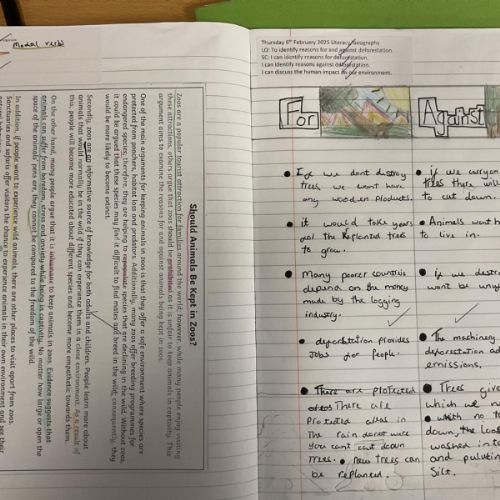 Modal verbs
Should Animals Be Kept in Zoos?
Zoos are a popular tourist attraction for families around the world; however, while many people enjoy visiting
these attractions, others argue that zoos should be prohibited as it is unfair to keep animals in captivity. This
argument aims to examine the reasons for and against animals being kept in zoos.
One of the main arguments for keeping animals in zoos is that they offer a safe environment where species are
protected from poachers, habitat loss and predators. Additionally, many zoos offer breeding programmes for
endangered species; therefore, they are helping to species that are declining in the wild. Without zoos,
it could be argued that these species may find it difficult to find mates and breed in the wild; consequently, they
would be more likely to become extinct.
Secondly, zoos are an informative source of knowledge for both adults and children. People learn more about
animals that would normally be in the wild if they can experience them in a close environment. As a result of
this, people will become more educated about different species and become more empathetic towards them.
On the other hand, many people argue that it is inhumane to keep animals in zoos. Evidence suggests that
animals can suffer from boredom, stress and anxiety while being in captivity. No matter how large or open the
space of the animals' pens are, they cannot be compared to the freedom of the wild.
In addition, if people want to experience wild animals, there are other places to visit apart from zoos.
Sanctuaries and safaris offer visitors the chance to experience animals in their own environment and see their
Thursday 6th February 2025 Literacy/Geography
LO: To identify reasons for and against deforestation.
SC: I can identify reasons for deforestation.
I can identify reasons against deforestation.
I can discuss the human impact on our environment.
For
Against
• If we dont destroy
trees we wont have
any wooden products.
• it would take years
the replanted trees
to grow.
• Many poorer countris
depend on the money
made by the logging
industry.
• deforestation provides
Jobs for people.
• There are protected
There are
Protected areas in
The rain
you cant cut down
Trees. • New Trees can
be replanted.
• if we carry on
trees there
to cut down.
• Animals wont h
to live in.
• if we destro
wont be
• The machinery
deforestation ad
emissions.
• Trees give
which we n
• with no t
down, the
washed into
and
silt.